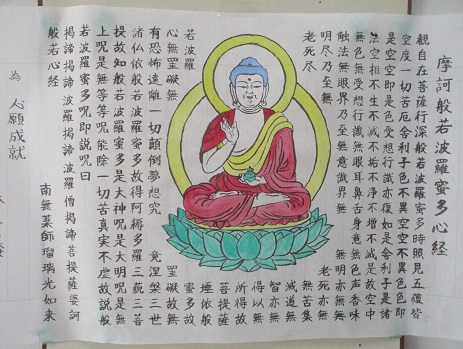 摩訶般若波羅蜜多心経
観自在菩薩行深般若波羅蜜多時照見五蘊皆
空度一切苦厄舎利子色不異空空不異色色即
是空空即是色受想行識亦復如是舎利子是諸
法空相不生不滅不垢不浄不増不減是故空中
無色無受想行識無眼耳鼻舌身意無色声香味
触法無眼界乃至無意識界無 無明亦無無
明尽乃至無 老死亦無
老死尽 無苦集
滅道無
智亦無
得以無
所得故
菩提薩
埵依般
若波羅 蜜多故
心無罣礙無 罣礙故無
有恐怖遠離一切顛倒夢想究 竟涅槃三世
諸仏依般若波羅蜜多故得阿耨多羅三藐三菩
提故知般若波羅蜜多是大神呪是大明呪是無
上呪是無等等呪能除一切苦真実不虚故説般
若波羅蜜多呪即説呪曰
掲諦掲諦波羅掲諦波羅僧掲諦菩提薩婆訶
般若心経
南無薬師瑠璃光如来
為 心願成就